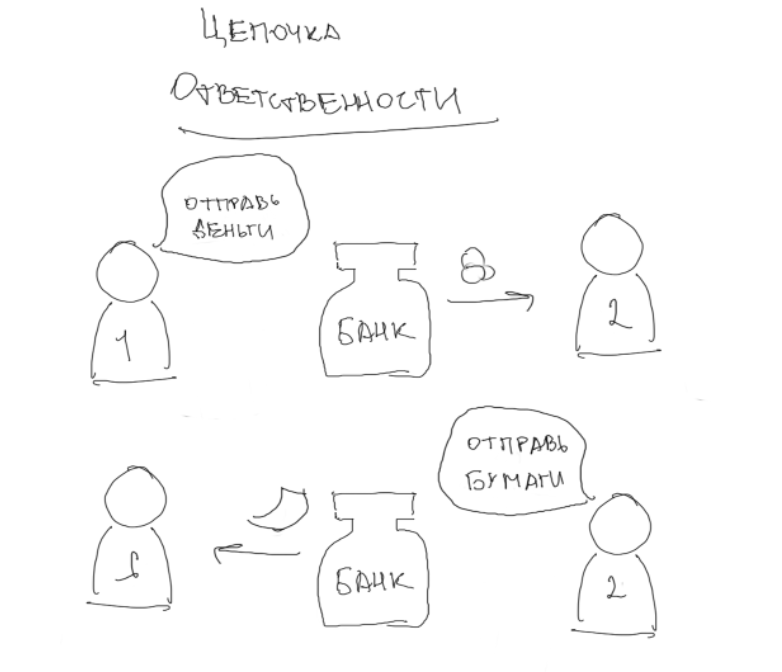 ЦЕПОЧКА
ОТВЕТСТВЕННОСТИ
ОТПРАВЬ
ДЕНЬГИ
1
БАНК
2
ОТПРАВЬ
БУМАГИ
1
БАНК
2